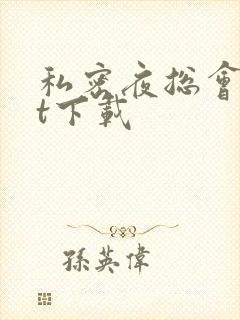 私密夜总會
t下載
孫英偉